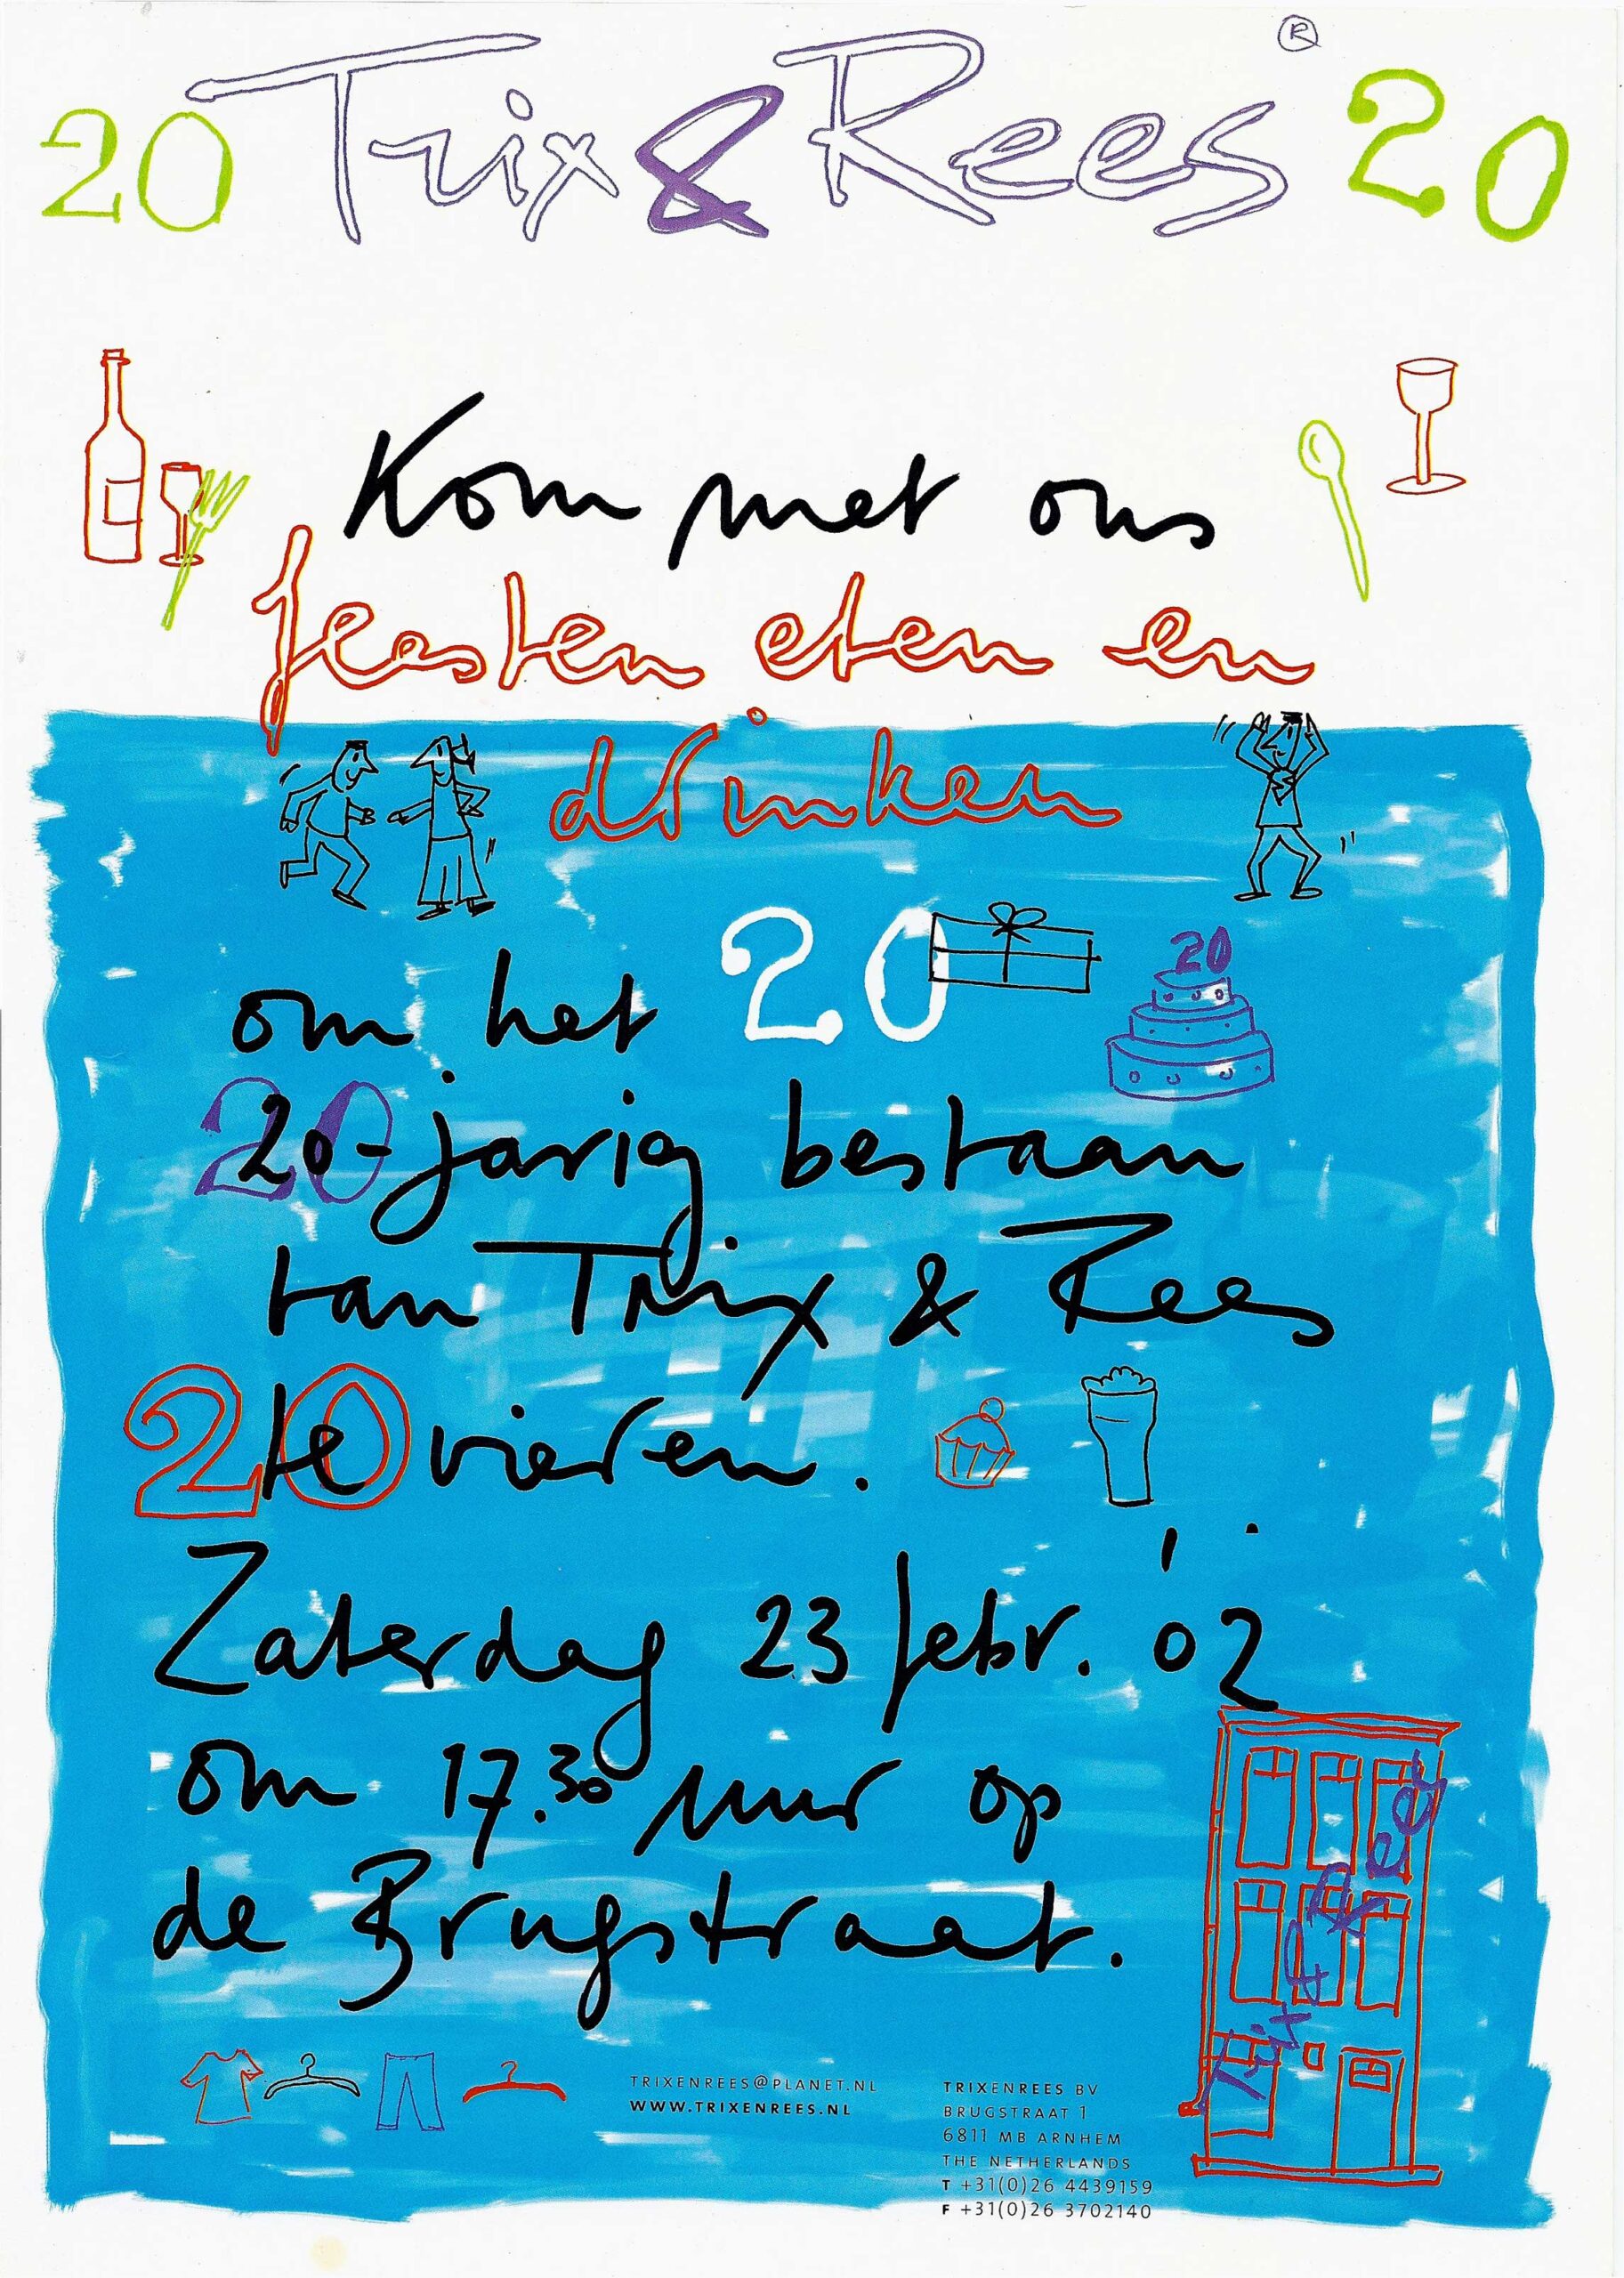 20 Trix & Rees ® 20
Kom met ons
feesten eten en
drinken
om het 20
20
20-jarig bestaan
van Trix & Rees
20
te vieren.
Zaterdag 23 febr. '02
om 17.30 uur op
de Brugstraat.
Trix & Rees
TRIXENREES@PLANET.NL
WWW.TRIXENREES.NL
TRIXENREES BV
BRUGSTRAAT 1
6811 MB ARNHEM
THE NETHERLANDS
T +31(0)26 4439159
F +31(0)26 3702140